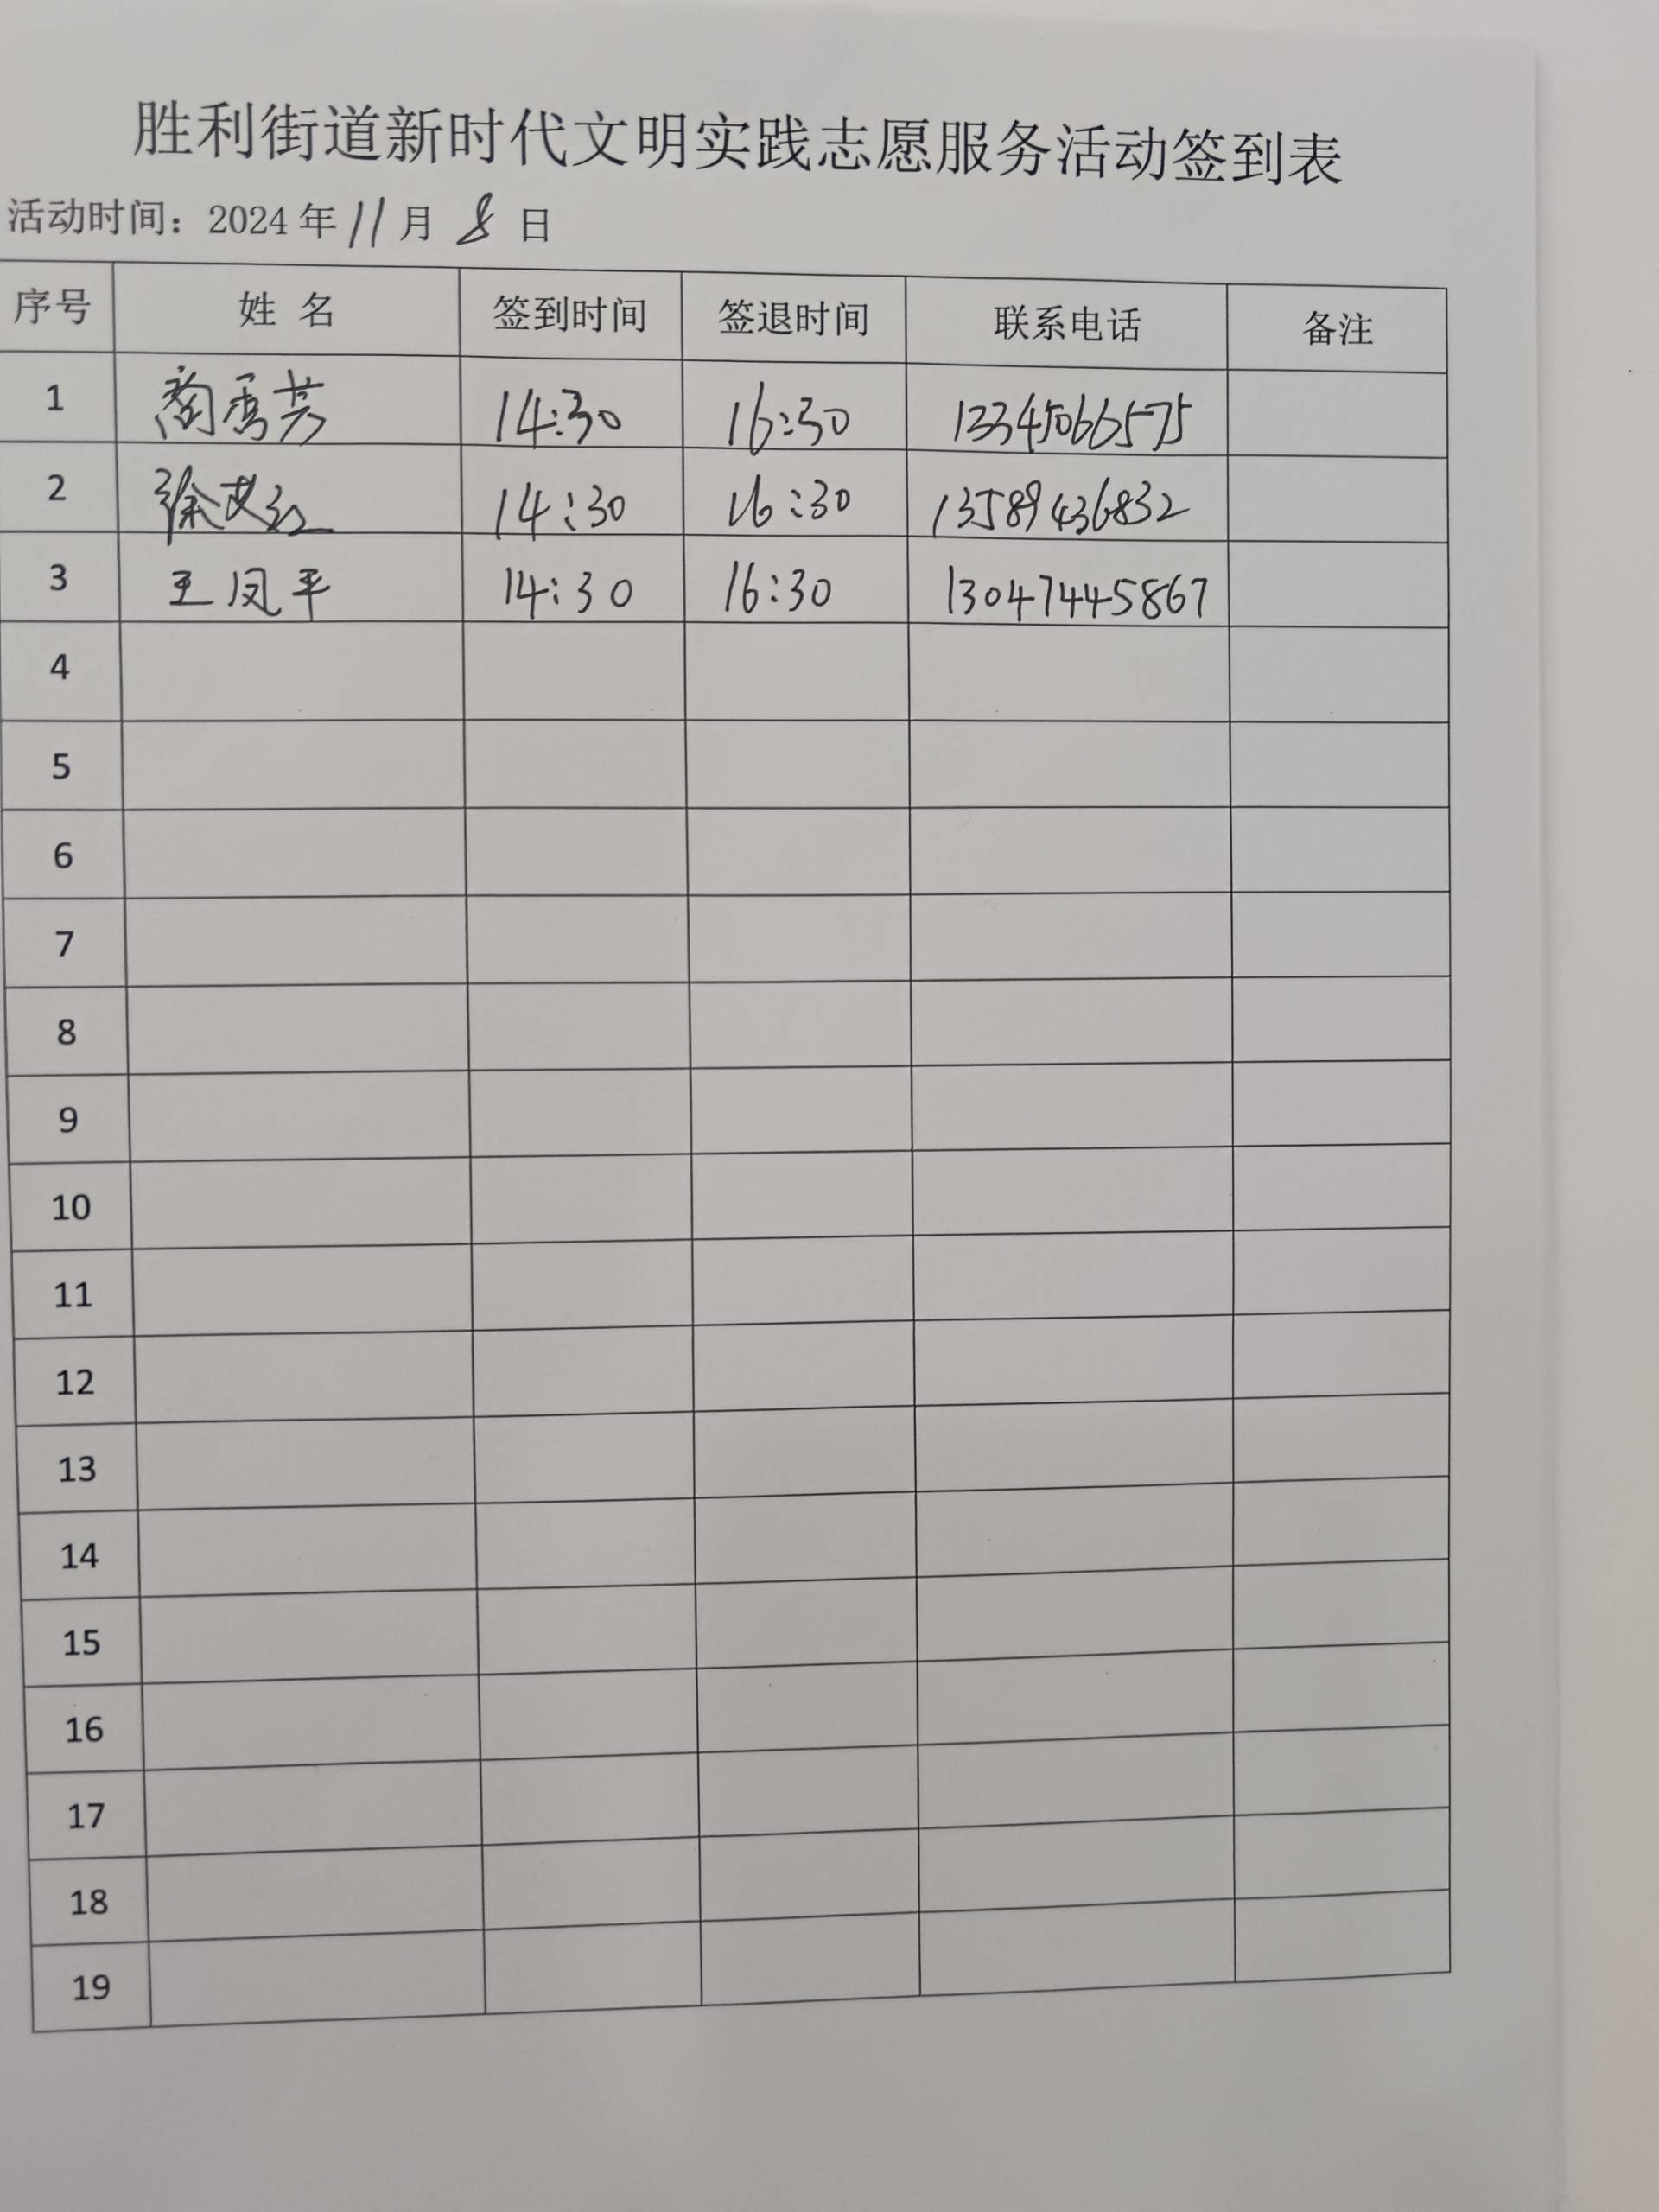 胜利街道新时代文明实践志愿服务活动签到表
活动时间：2024年11月8日
序号 姓名 签到时间 签退时间 联系电话 备注
1 商秀芸 14:30 16:30 13345066575
2 徐艾红 14:30 16:30 13589436832
3 王凤平 14:30 16:30 13047445867
4
5
6
7
8
9
10
11
12
13
14
15
16
17
18
19